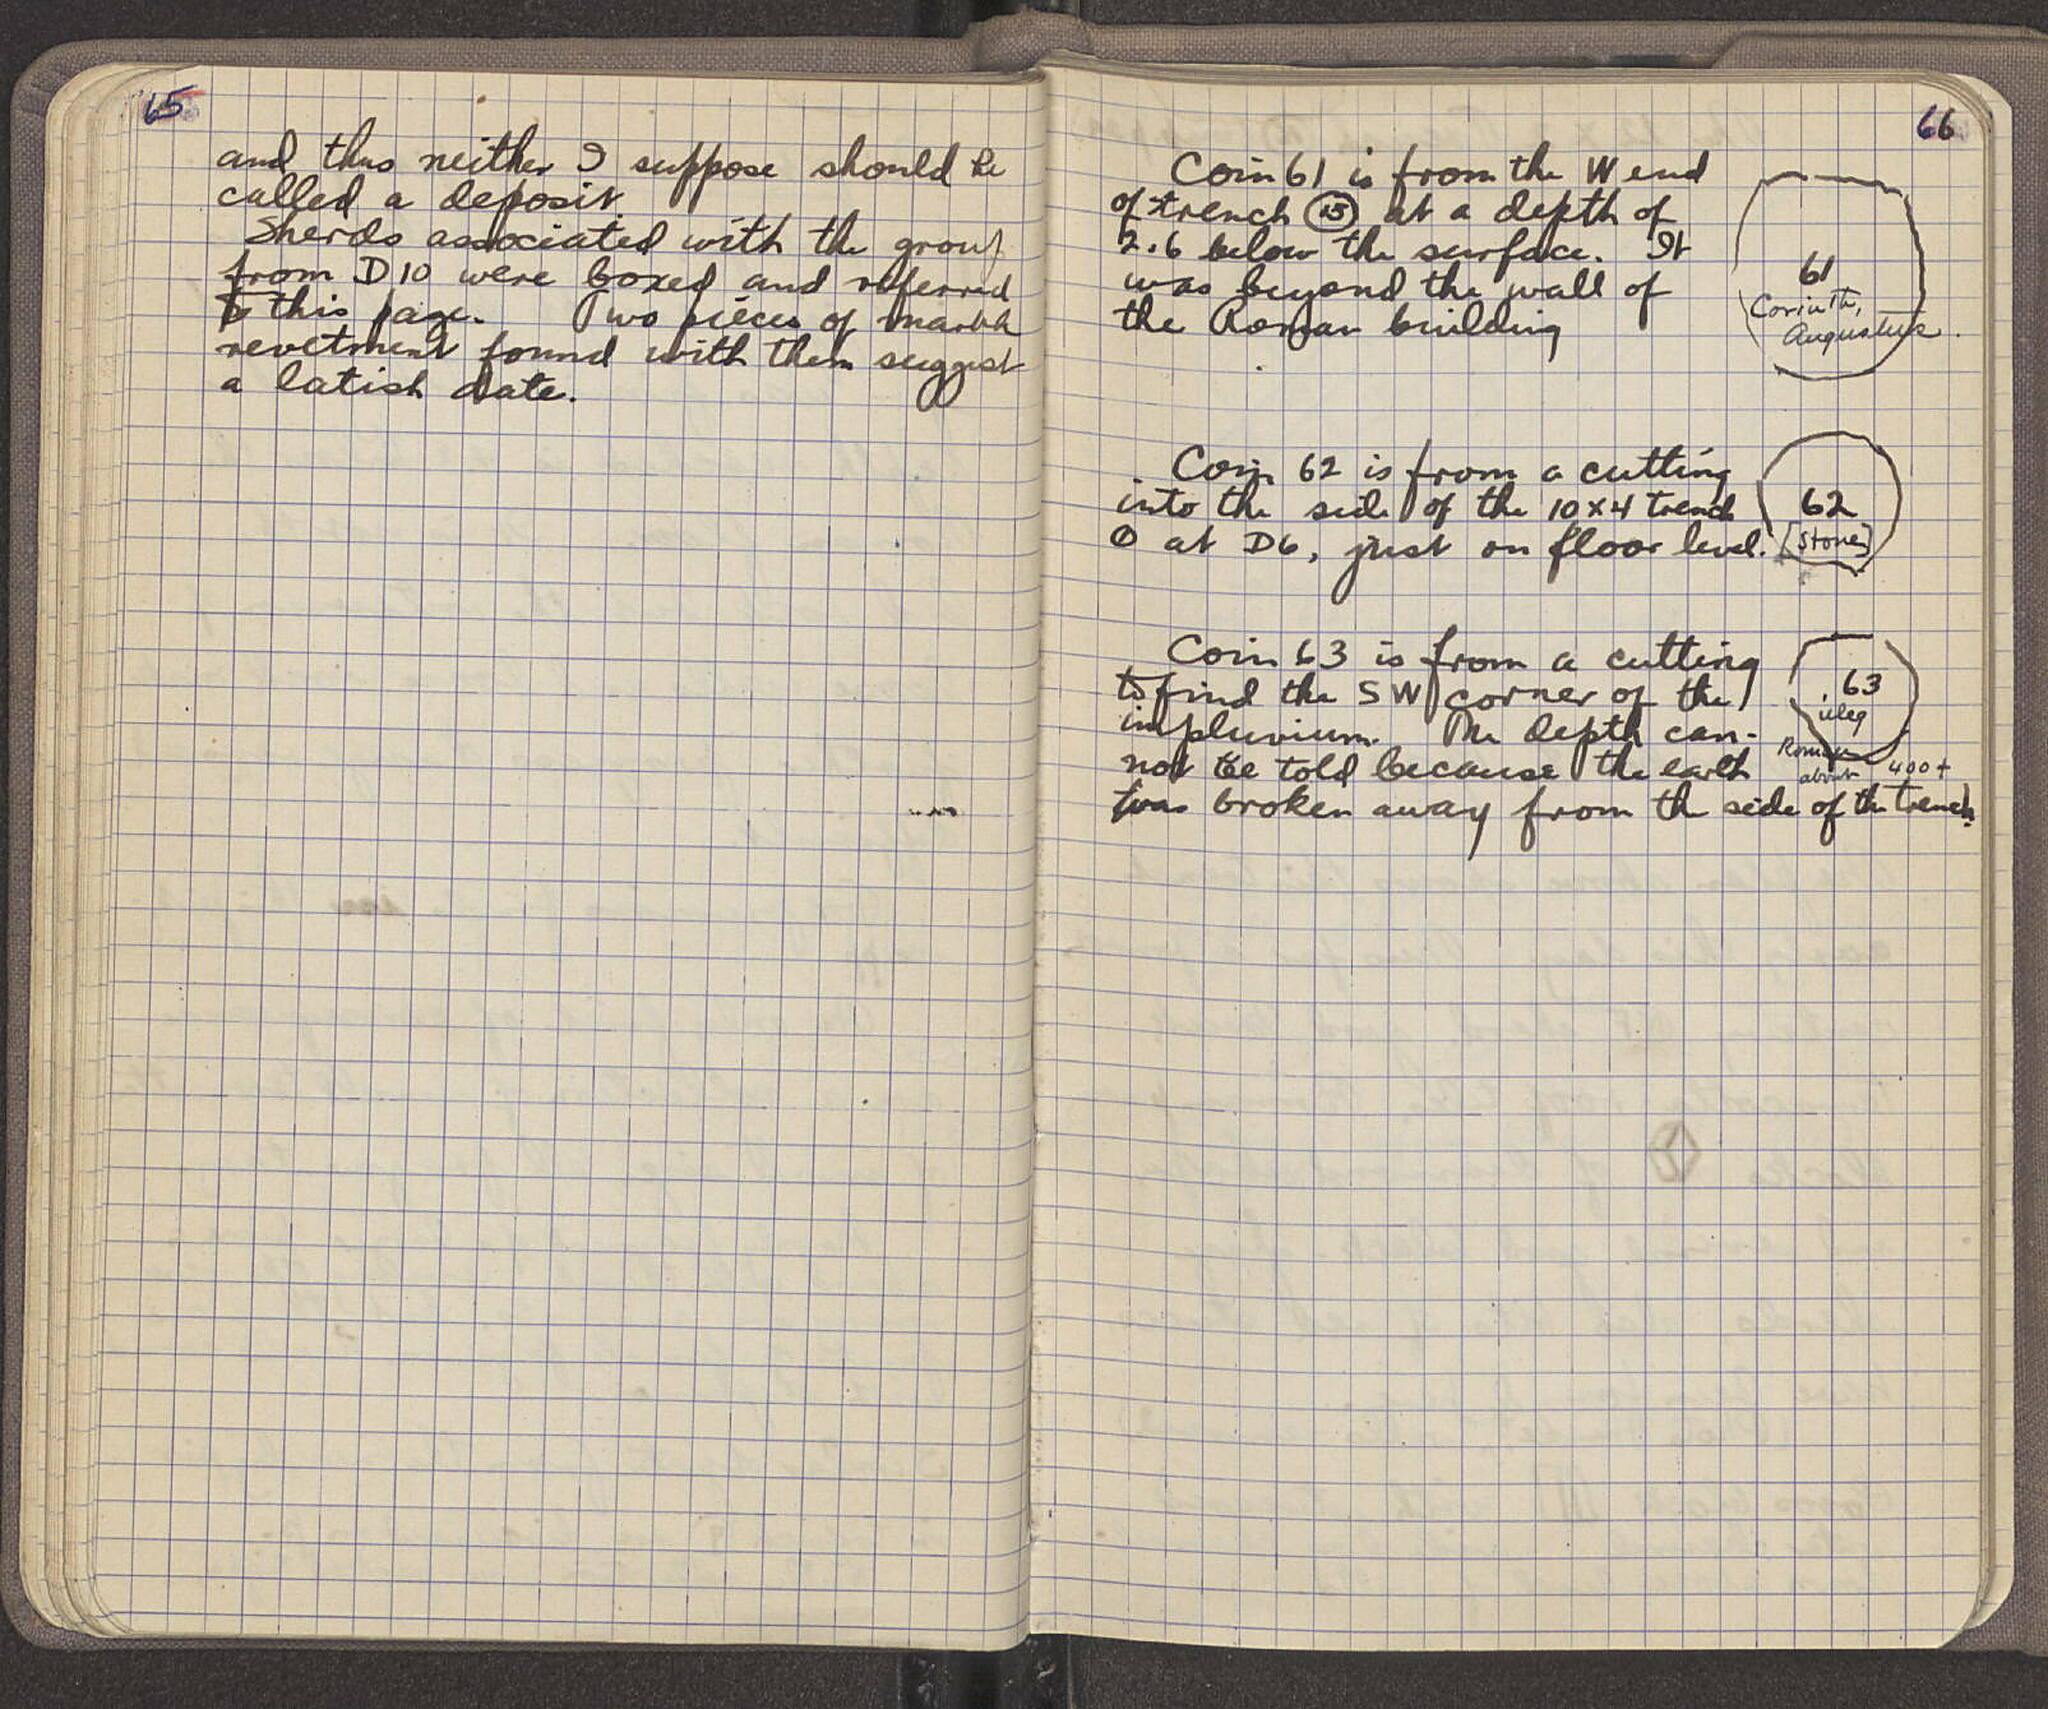 65
and thus neither I suppose should be
called a deposit.
Sherds associated with the group
from D10 were boxed and referred
to this page. Two pieces of marble
revetment found with them suggest
a latish date.
66
Coin 61 is from the W end
of trench 15 at a depth of
2.6 below the surface. It
was beyond the wall of
the Roman building
61
Corinth,
Augustus.
Coin 62 is from a cutting
into the side of the 10x4 trench
at D6, just on floor level.
62
[Stone]
Coin 63 is from a cutting
to find the SW corner of the
impluvium. The depth can-
not be told because the earth
was broken away from the side of the trench.
63
illeg
Roman
about 400+